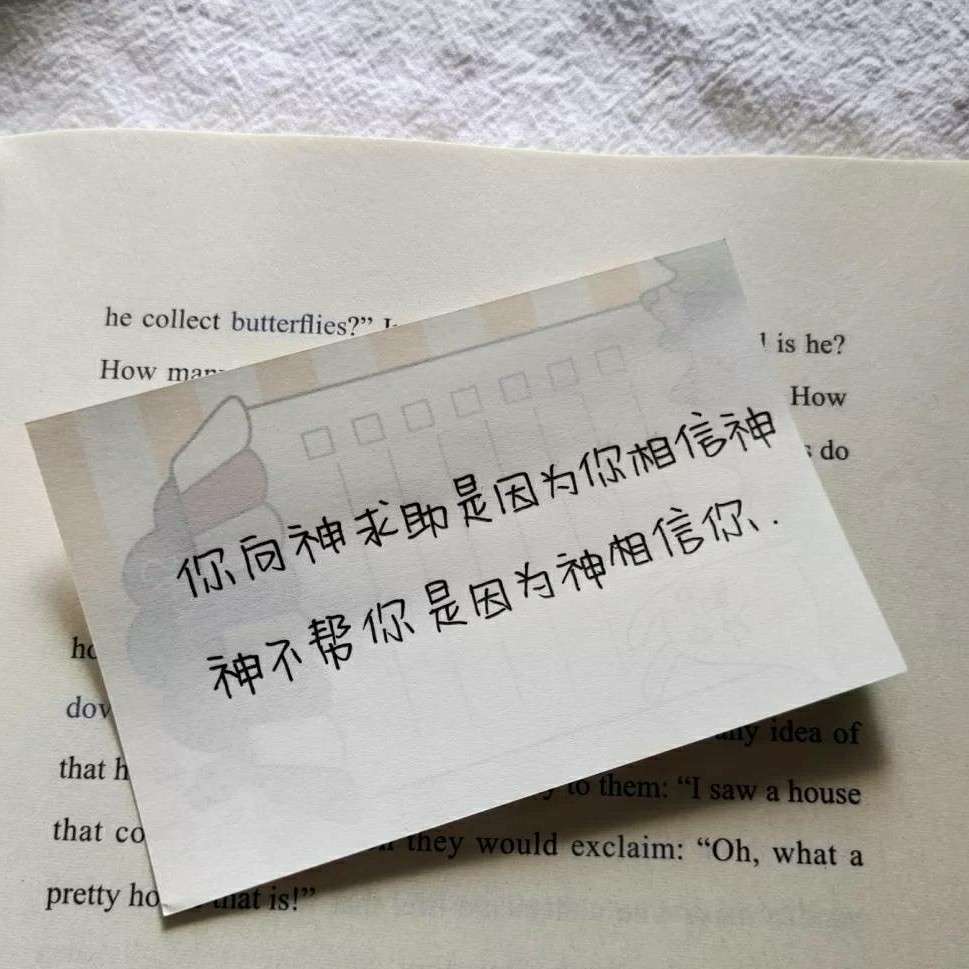 he collect butterflies?”
is he?
How
How
do
你向神求助是因为你相信神
神不帮你是因为神相信你、.
idea of
that
to them: “I saw a house
that
they would exclaim: “Oh, what a
pretty
that is!”